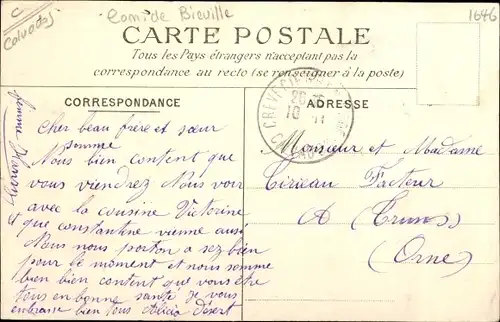 C
Calvados
Com. de Biéville
1646
CARTE POSTALE
Tous les Pays étrangers n'acceptant pas la
correspondance au recto (se renseigner à la poste)
CORRESPONDANCE
ADRESSE
CREVECOEUR
Cher beau frère et sœur
Nous somme
bien content que
vous viendrez Nous voir
avec la cousine Victorine
que constantine vienne aussi
Nous nous porton a sez bien
pour le moment et nous somme
bien bien content que vous être
tous en bonne santé je vous
embrasse bien tous Alicia Désert
Monsieur et Madame
Cirieau Facteur
A Trun
(Orne)